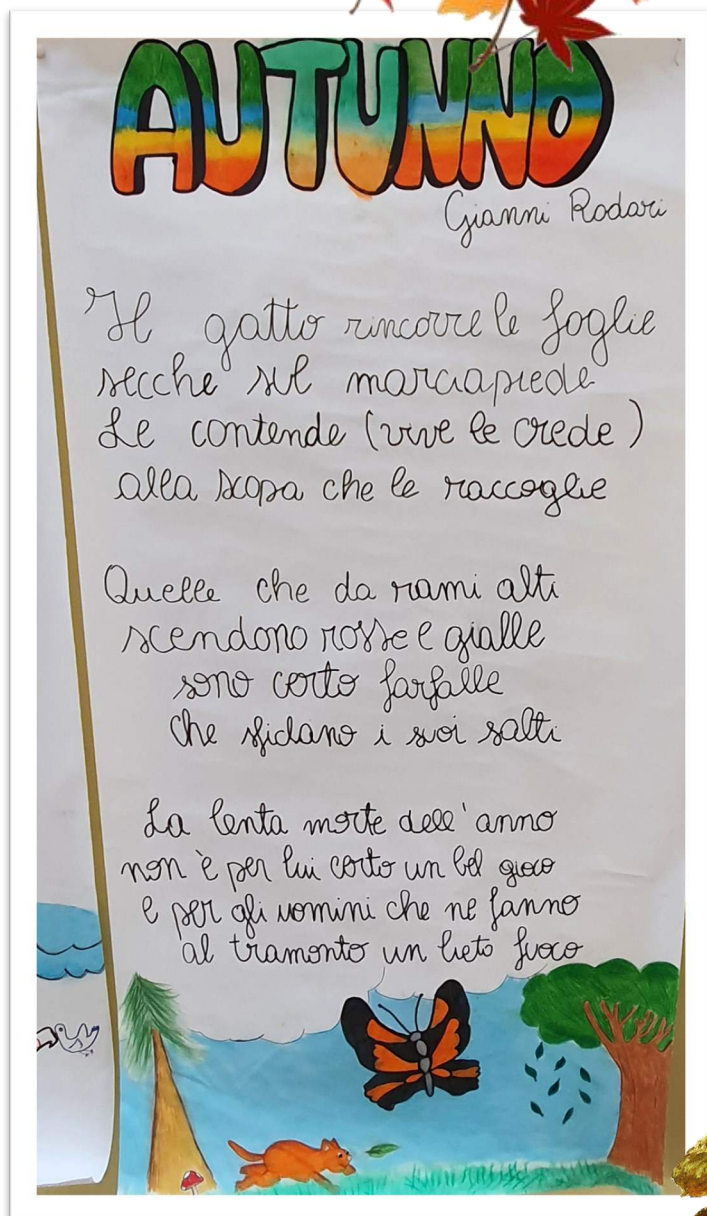 AUTUNNO
Gianni Rodari
Il gatto rincorre le foglie
secche sul marciapiede
Le contende (vive le crede)
alla scopa che le raccoglie
Quelle che da rami alti
scendono rosse e gialle
sono certo farfalle
che sfidano i suoi salti
La lenta morte dell'anno
non è per lui certo un bel gioco
e per gli uomini che ne fanno
al tramonto un lieto fuoco